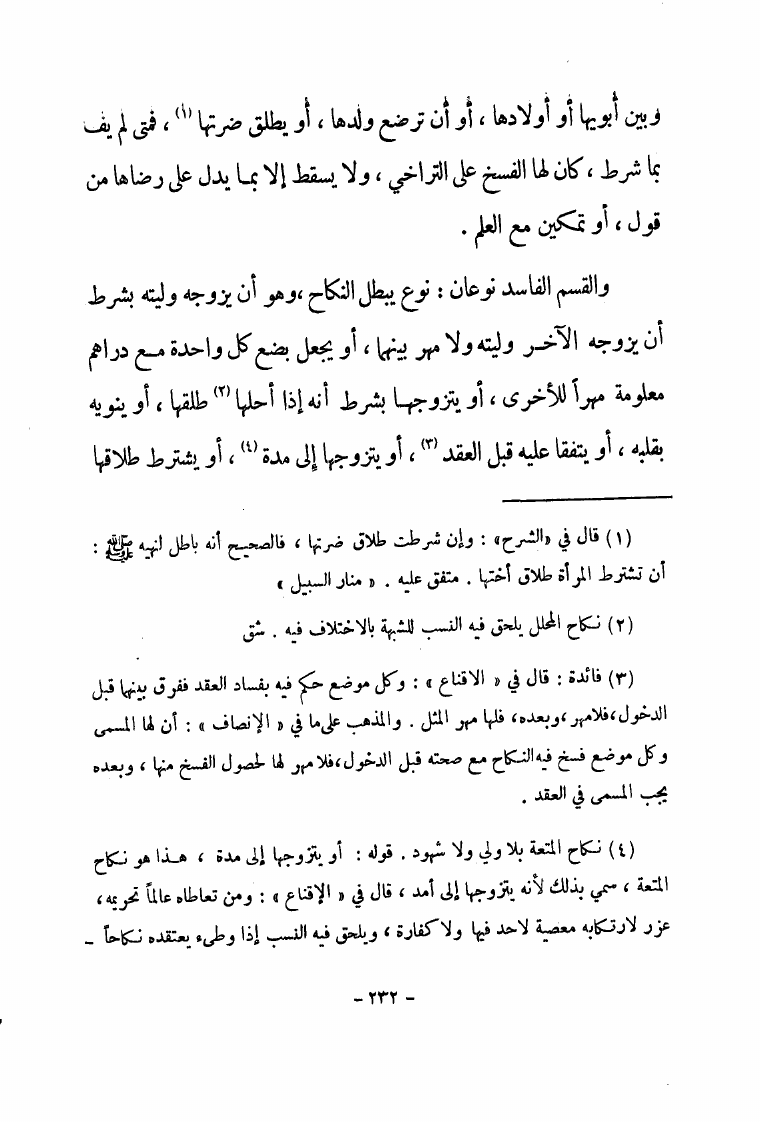 وبين أبويها أو أولادها ، أو أن ترضع ولدها ، أو يطلق ضرتها (١) ، فمتى لم يف
بما شرط ، كان لها الفسخ على التراخي ، ولا يسقط إلا بما يدل على رضاها من
قول ، أو تمكين مع العلم .
والقسم الفاسد نوعان : نوع يبطل النكاح ،وهو أن يزوجه وليته بشرط
أن يزوجه الآخر وليته ولا مهر بينهما ، أو يجعل بضع كل واحدة مع دراهم
معلومة مهراً للأخرى ، أو يتزوجها بشرط أنه إذا أحلها (٢) طلقها ، أو ينويه
بقلبه ، أو يتفقا عليه قبل العقد (٣) ، أو يتزوجها إلى مدة (٤) ، أو يشترط طلاقها
(١) قال في «الشرح» : وإن شرطت طلاق ضرتها ، فالصحيح أنه باطل لنهيه ﷺ :
أن تشترط المرأة طلاق أختها . متفق عليه . « منار السبيل »
(٢) نكاح المحلل يلحق فيه النسب للشبهة بالاختلاف فيه . شق
(٣) فائدة : قال في « الاقناع » : وكل موضع حكم فيه بفساد العقد ففرق بينهما قبل
الدخول،فلامهر ،وبعده، فلها مهر المثل . والمذهب على ما في « الإنصاف » : أن لها المسمى
وكل موضع فسخ فيه النكاح مع صحته قبل الدخول،فلا مهر لها لحصول الفسخ منها ، وبعده
يجب المسمى في العقد .
(٤) نكاح المتعة بلا ولي ولا شهود . قوله : أو يتزوجها إلى مدة ، هذا هو نكاح
المتعة ، سمي بذلك لأنه يتزوجها إلى أمد ، قال في « الإقناع » : ومن تعاطاه عالماً تحريمه،
عزر لارتكابه معصية لاحد فيها ولا كفارة ، ويلحق فيه النسب إذا وطىء يعتقده نكاحاً ـ
- ٢٣٢ -